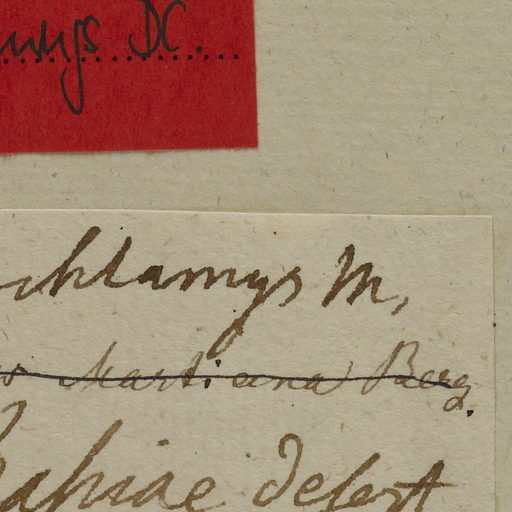 amys DC.
chlamys M,
Martiana Berg.
Bahiae desert